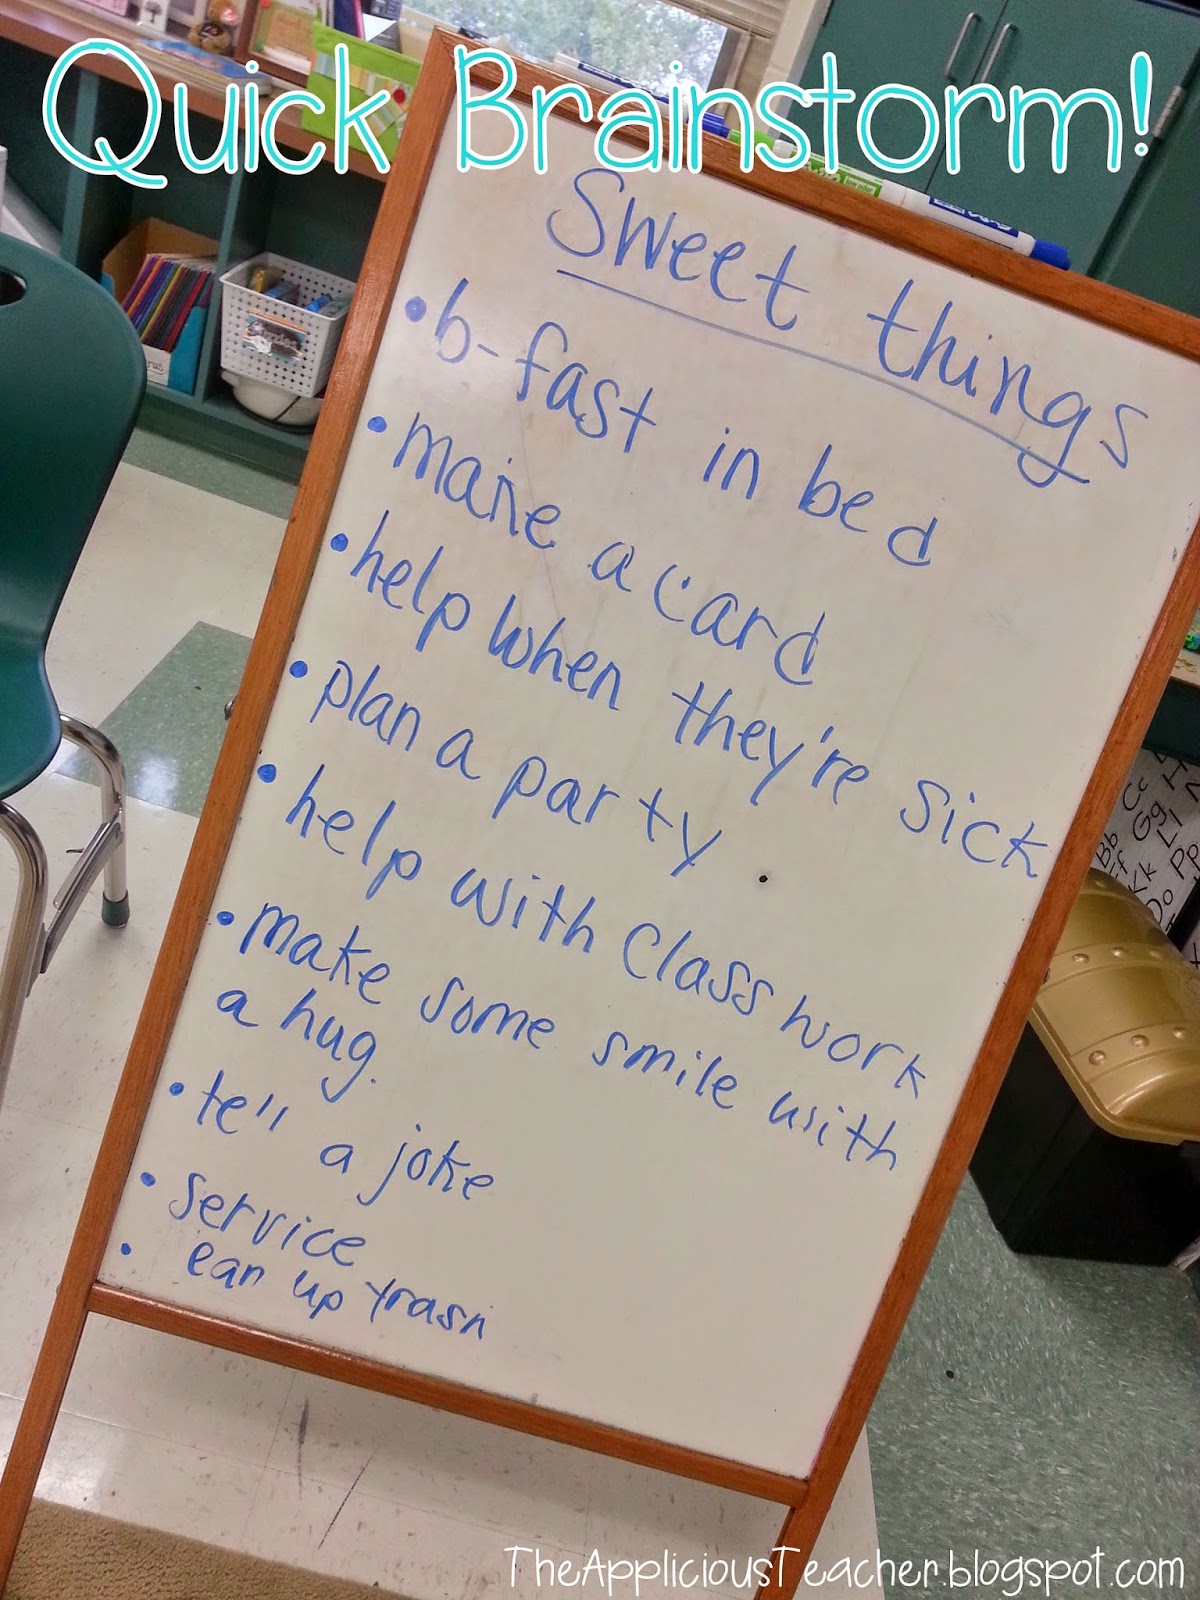 Quick Brainstorm!
Sweet things
• b-fast in bed
• make a card
• help when they're sick
• plan a party.
• help with Class work
• make some smile with
a hug.
• tell a joke
• service
• ean up trash
Cc
Bb
Gg
Ff
Kk
Ll
Oo
Pp
TheAppliciousTeacher.blogspot.com